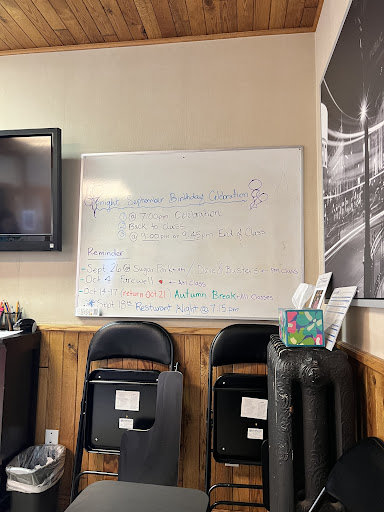 Tonight September Birthday Celebration
① @ 7:00pm Celebration
② Back to Class
③ @ 9:00pm or 9:45pm End of Class
Reminder
- Sept 26 @ Sugar
- Oct 4 Farewell Art Class
- Oct 14-17 (return Oct 21) Autumn Break - All Classes
* Sept 18th Restaurant Night @ 7:15pm